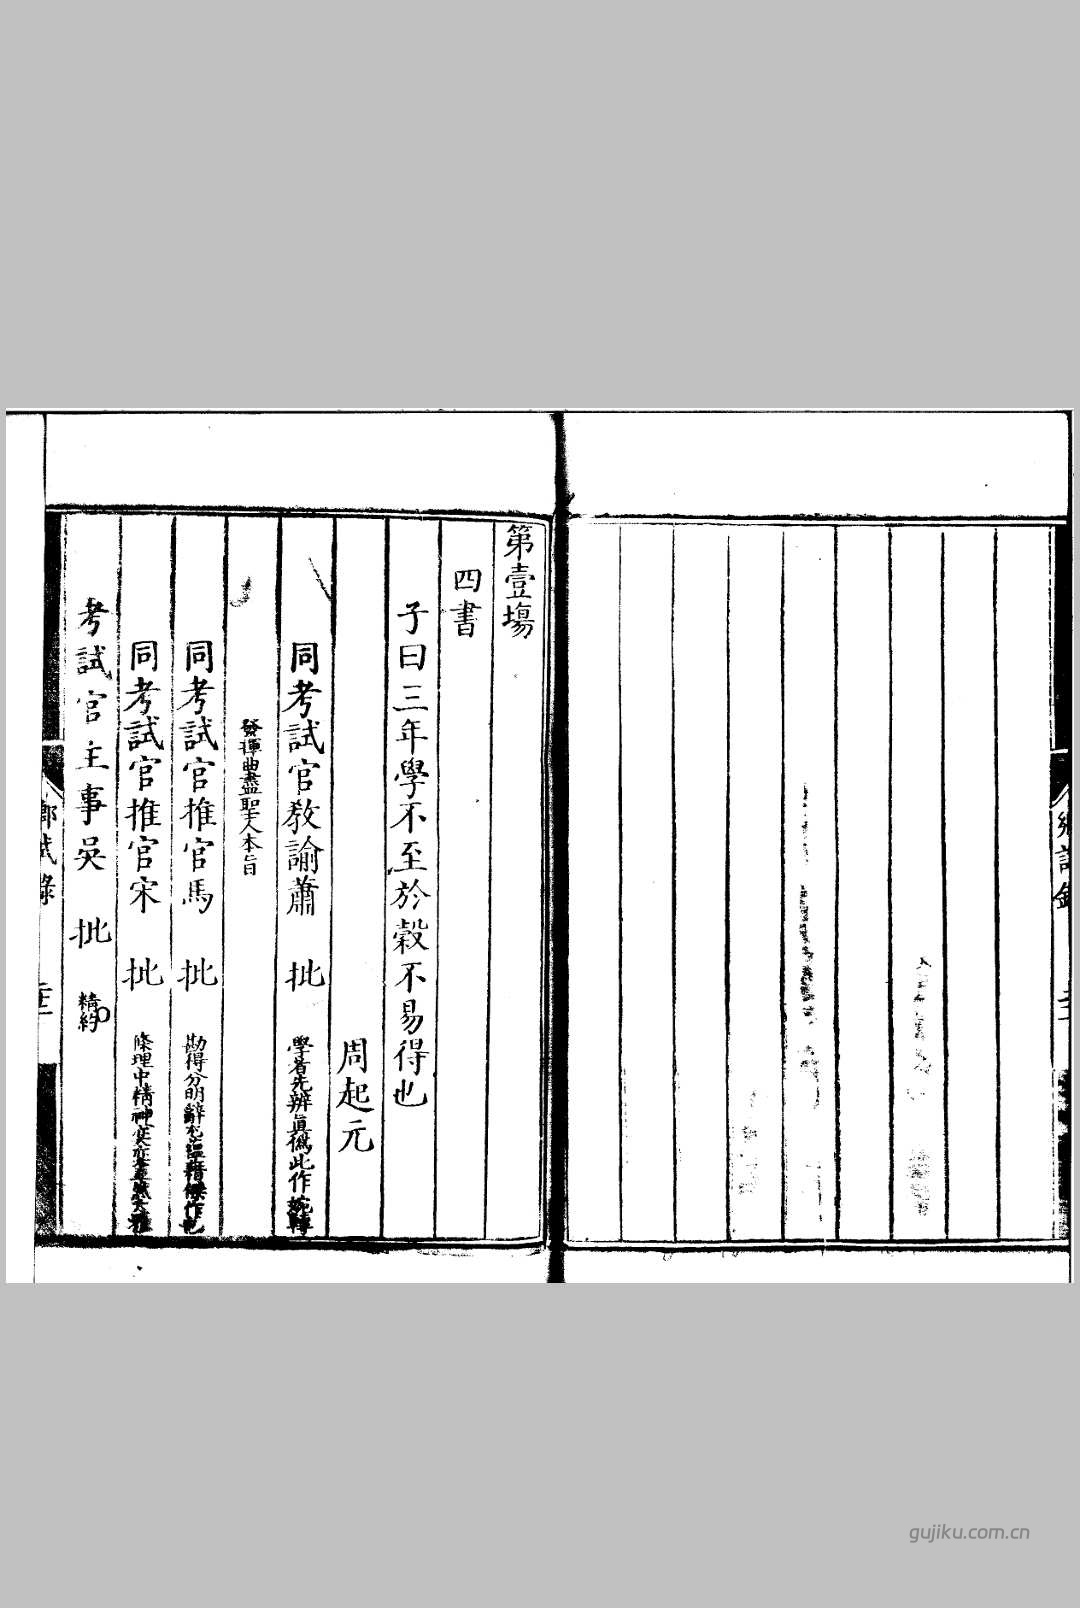 第壹塲
四書
子曰三年學不至於榖不易得也
周起元
同考試官教諭蕭 批 學者先辨眞僞此作婉轉
發揮曲盡聖人本旨
同考試官推官馬 批 勘得分明辭
同考試官推官宋 批 條理中精神
考試官主事吳 批 精約
鄉試錄
gujiku.com.cn